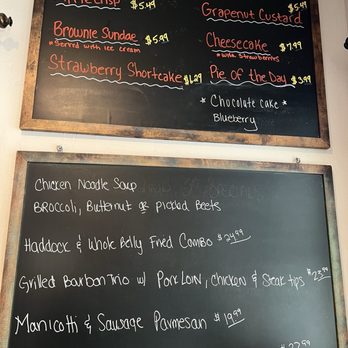 Crisp $5.49
Grapenut Custard $5.49
Brownie Sundae $5.99
* Served with ice cream
Cheesecake $7.99
* with Strawberries
Strawberry Shortcake $6.29
Pie of the Day $3.99
* Chocolate Cake *
Blueberry
Chicken Noodle Soup
Broccoli, Butternut or Pickled Beets
Haddock & Whole Belly Fried Combo $24.99
Grilled Bourbon Trio w/ Pork Loin, Chicken & Steak tips $23.99
Manicotti & Sausage Parmesan $19.99